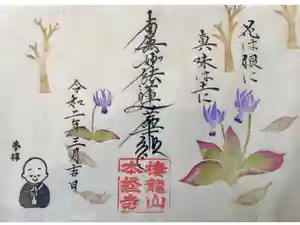 花は根に
真味は土に
南無妙法蓮華経
令和二年三月吉日
奉拝
棲龍山
本